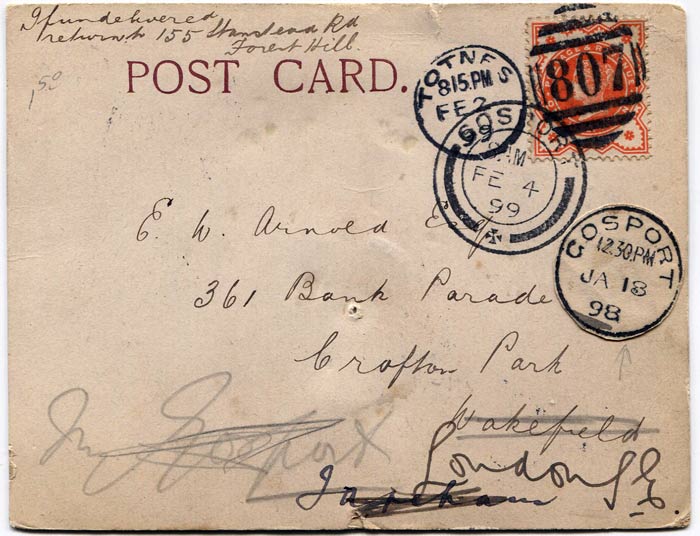 If undelivered
return to 155 Stanstead Rd
Forest Hill.
1.50
POST CARD.
TOTNES
815.PM
FE 2
99
807
GOSPORT
AM
FE 4
99
GOSPORT
12.30.PM
JA 18
98
E. W. Arnold Esq
361 Bank Parade
Crofton Park
Wakefield
London S.E.
Gosport
Fareham